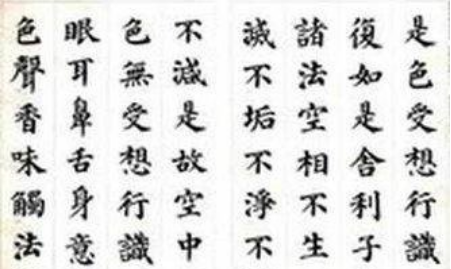 是色受想行識
復如是舍利子
諸法空相不生
滅不垢不淨不
不減是故空中
色無受想行識
眼耳鼻舌身意
色聲香味觸法